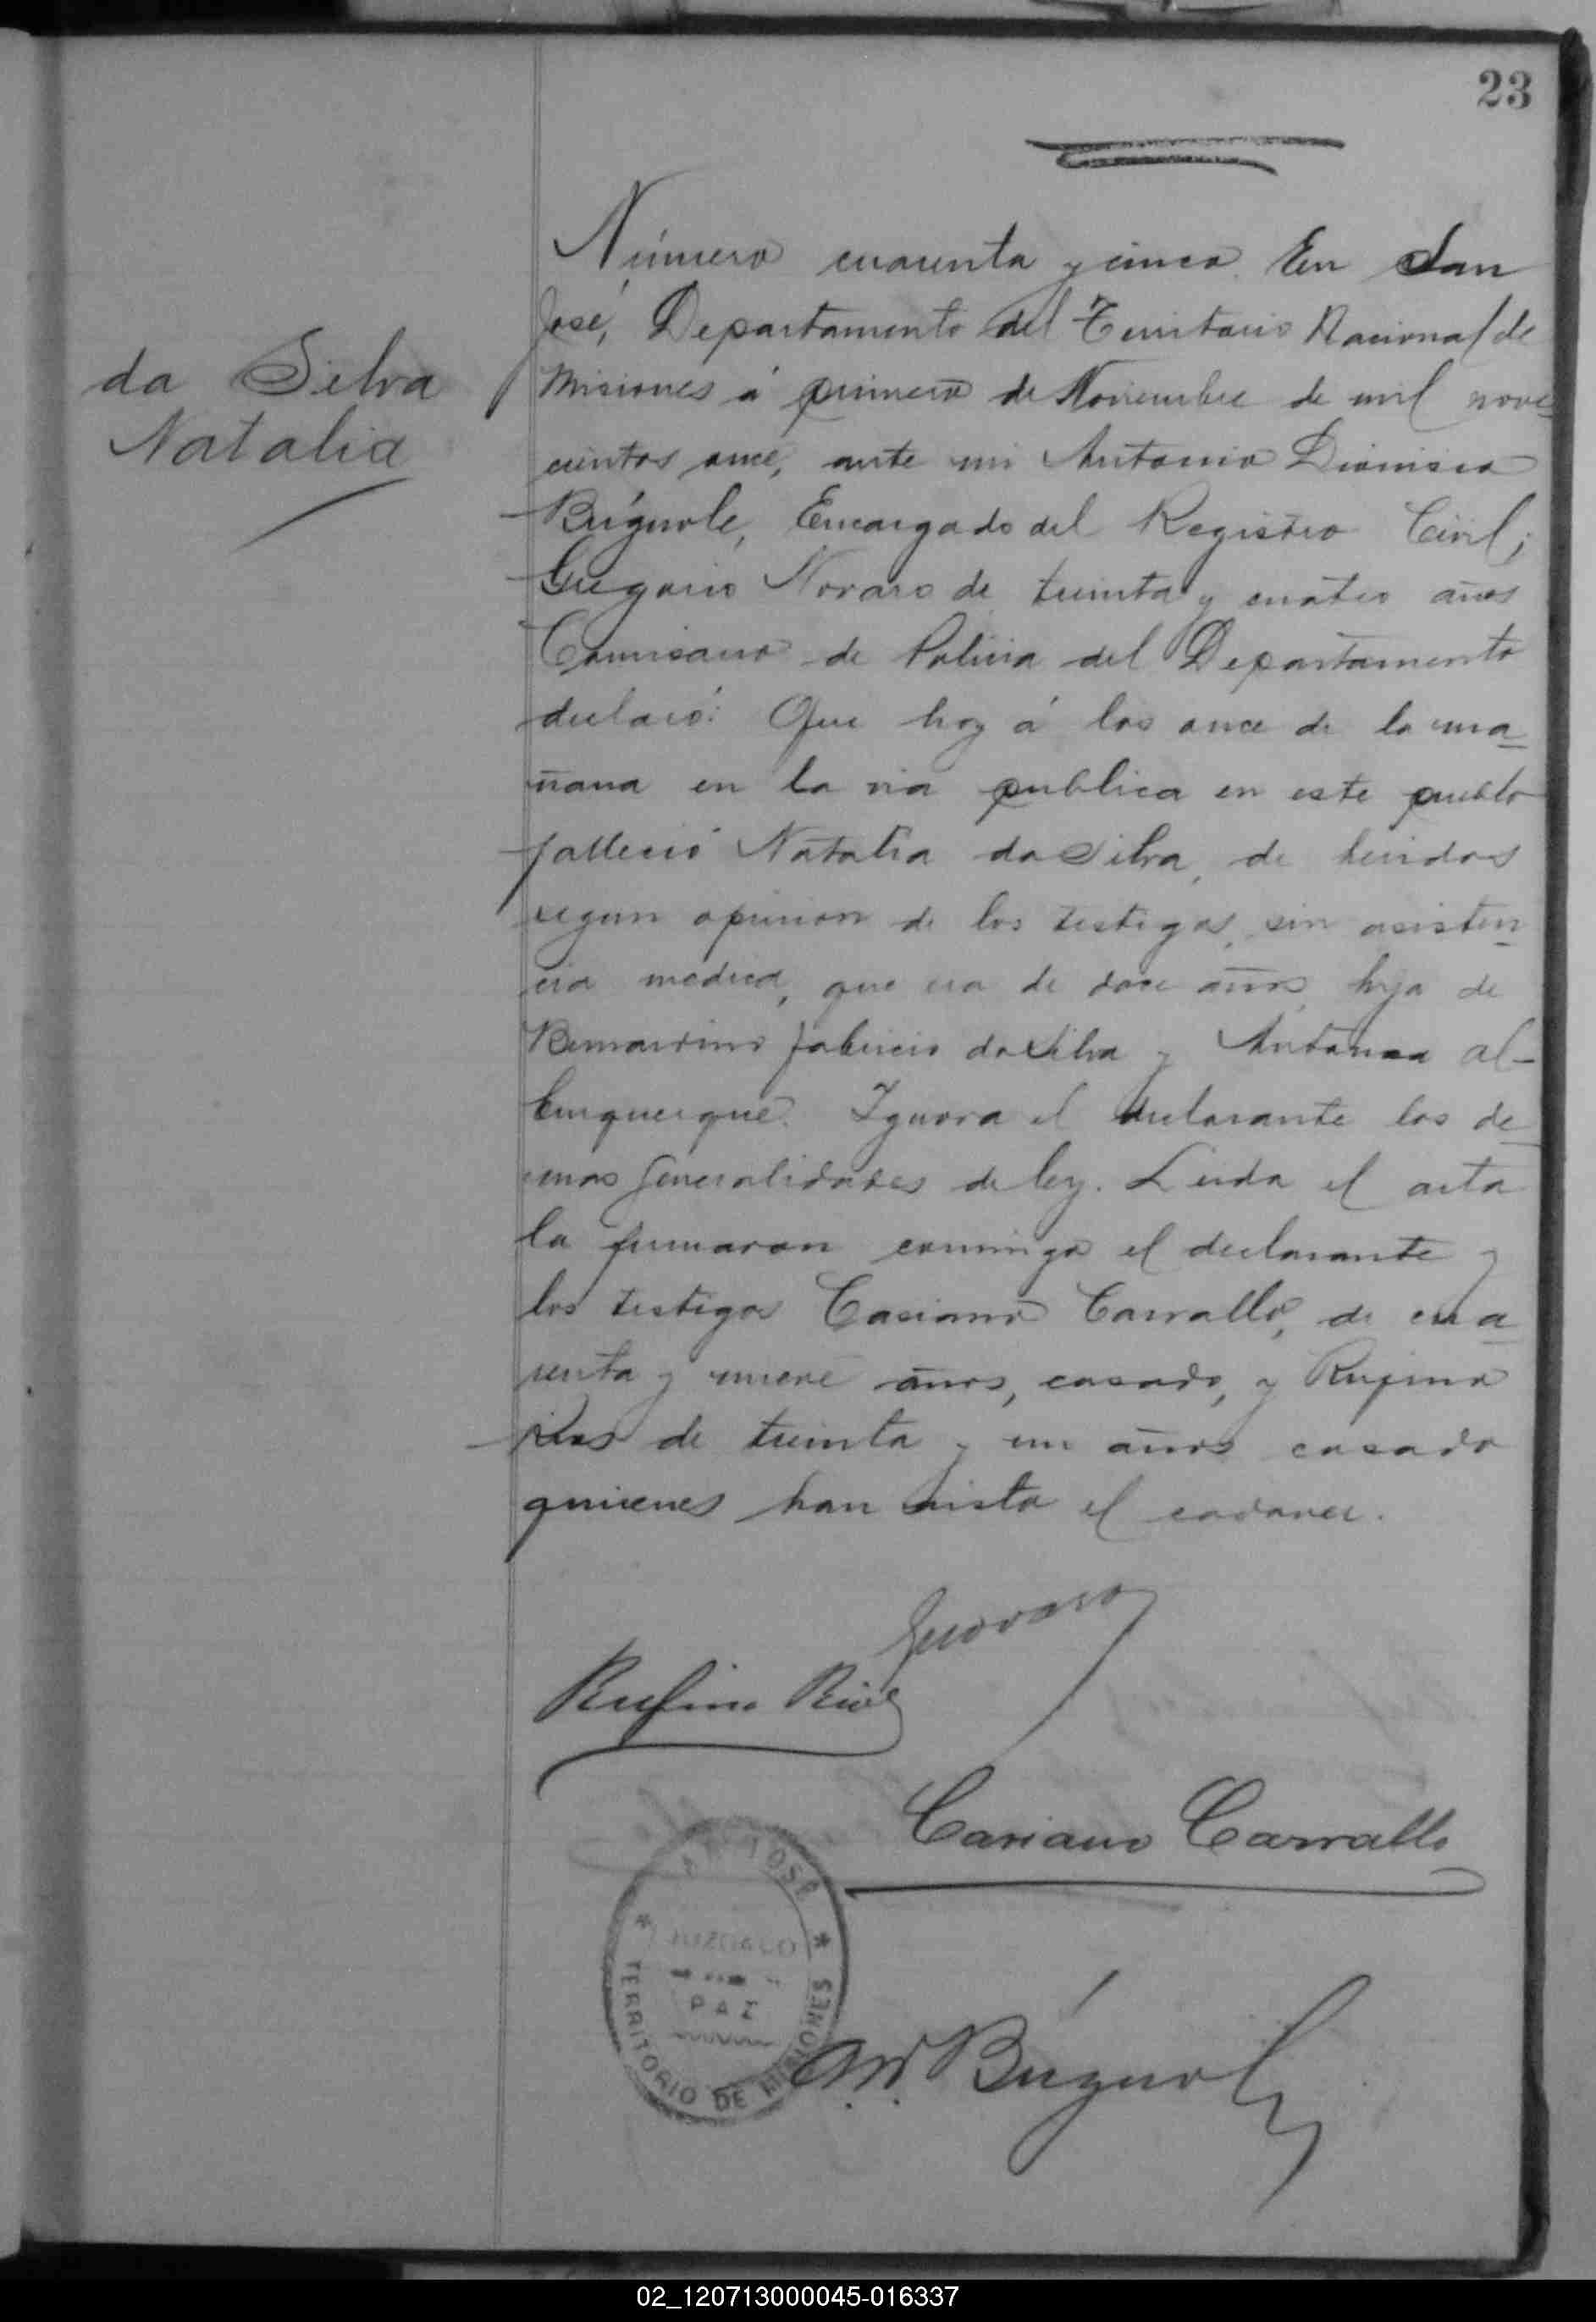 23
da Silva
Natalia
Número cuarenta y cinco. En San
José, Departamento del Territorio Nacional de
Misiones á primero de Noviembre de mil nove
cientos once, ante mi Antonio Dionisio
Búgnole, Encargado del Registro Civil;
Gregorio Novaro de treinta y cuatro años
Comisario de Policia del Departamento
declaró: Que hoy á las once de la ma
ñana en la via publica en este pueblo
falleció Natalia da Silva, de heridas
segun opinion de los testigos, sin asisten
cia medica, que era de doce años, hija de
Bernardino Fabricio da Silva y Antonia Al-
burquerque. Ignora el declarante las de
mas generalidades de ley. Leida el acta
la firmaron conmigo el declarante y
los testigos Casiano Carvallo, de cua
renta y nueve años, casado, y Rufino
Rios de treinta y un años casado
quienes han visto el cadaver.
Rufino Rios
Casiano Carvallo
SAN JOSÉ
JUZGADO
PAZ
TERRITORIO DE MISIONES
Búgnole
02_120713000045-016337